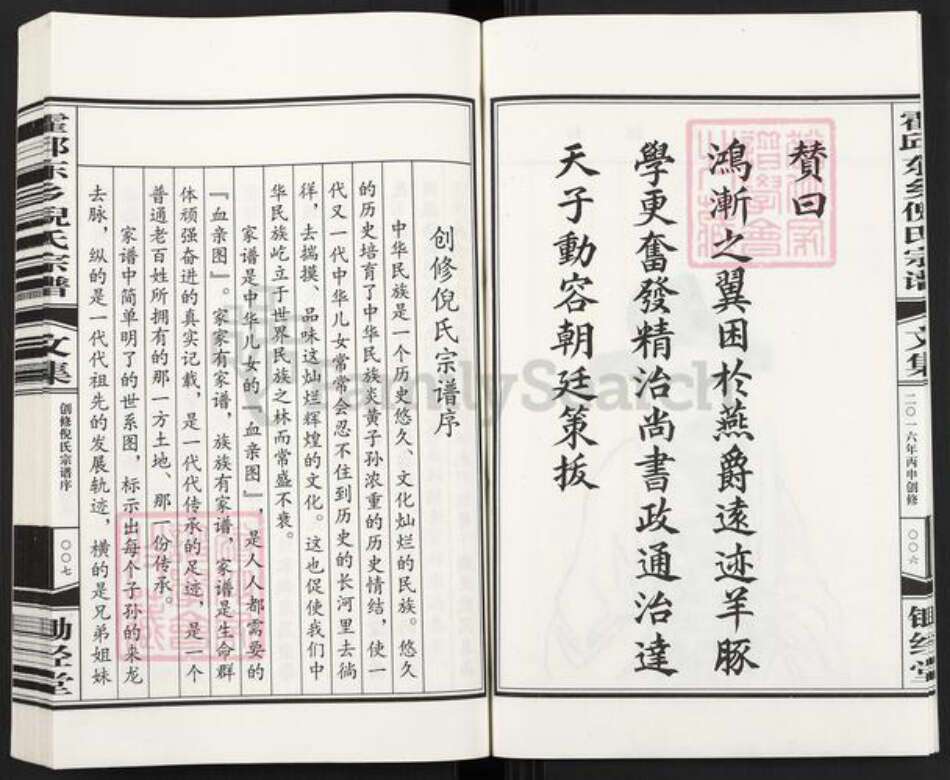 赞曰
鴻漸之翼困於燕爵遠迹羊豚
學更奮發精治尚書政通治達
天子動容朝廷策拔
二〇一六年丙申创修
〇〇六
创修倪氏宗谱序
中华民族是一个历史悠久、文化灿烂的民族。悠久
的历史培育了中华民族炎黄子孙浓重的历史情结，使一
代又一代中华儿女常常会忍不住到历史的长河里去徜
徉，去揣摸、品味这灿烂辉煌的文化。这也促使我们中
华民族屹立于世界民族之林而常盛不衰。
家谱是中华儿女的『血亲图』，是人人都需要的
『血亲图』。家家有家谱，族族有家谱，家谱是生命群
体顽强奋进的真实记载，是一代代传承的足迹，是一个
普通老百姓所拥有的那一方土地、那一份传承。
家谱中简单明了的世系图，标示出每个子孙的来龙
去脉，纵的是一代代祖先的发展轨迹，横的是兄弟姐妹
霍邱东乡倪氏宗谱
文集
创修倪氏宗谱序
〇〇七
FamilySearch